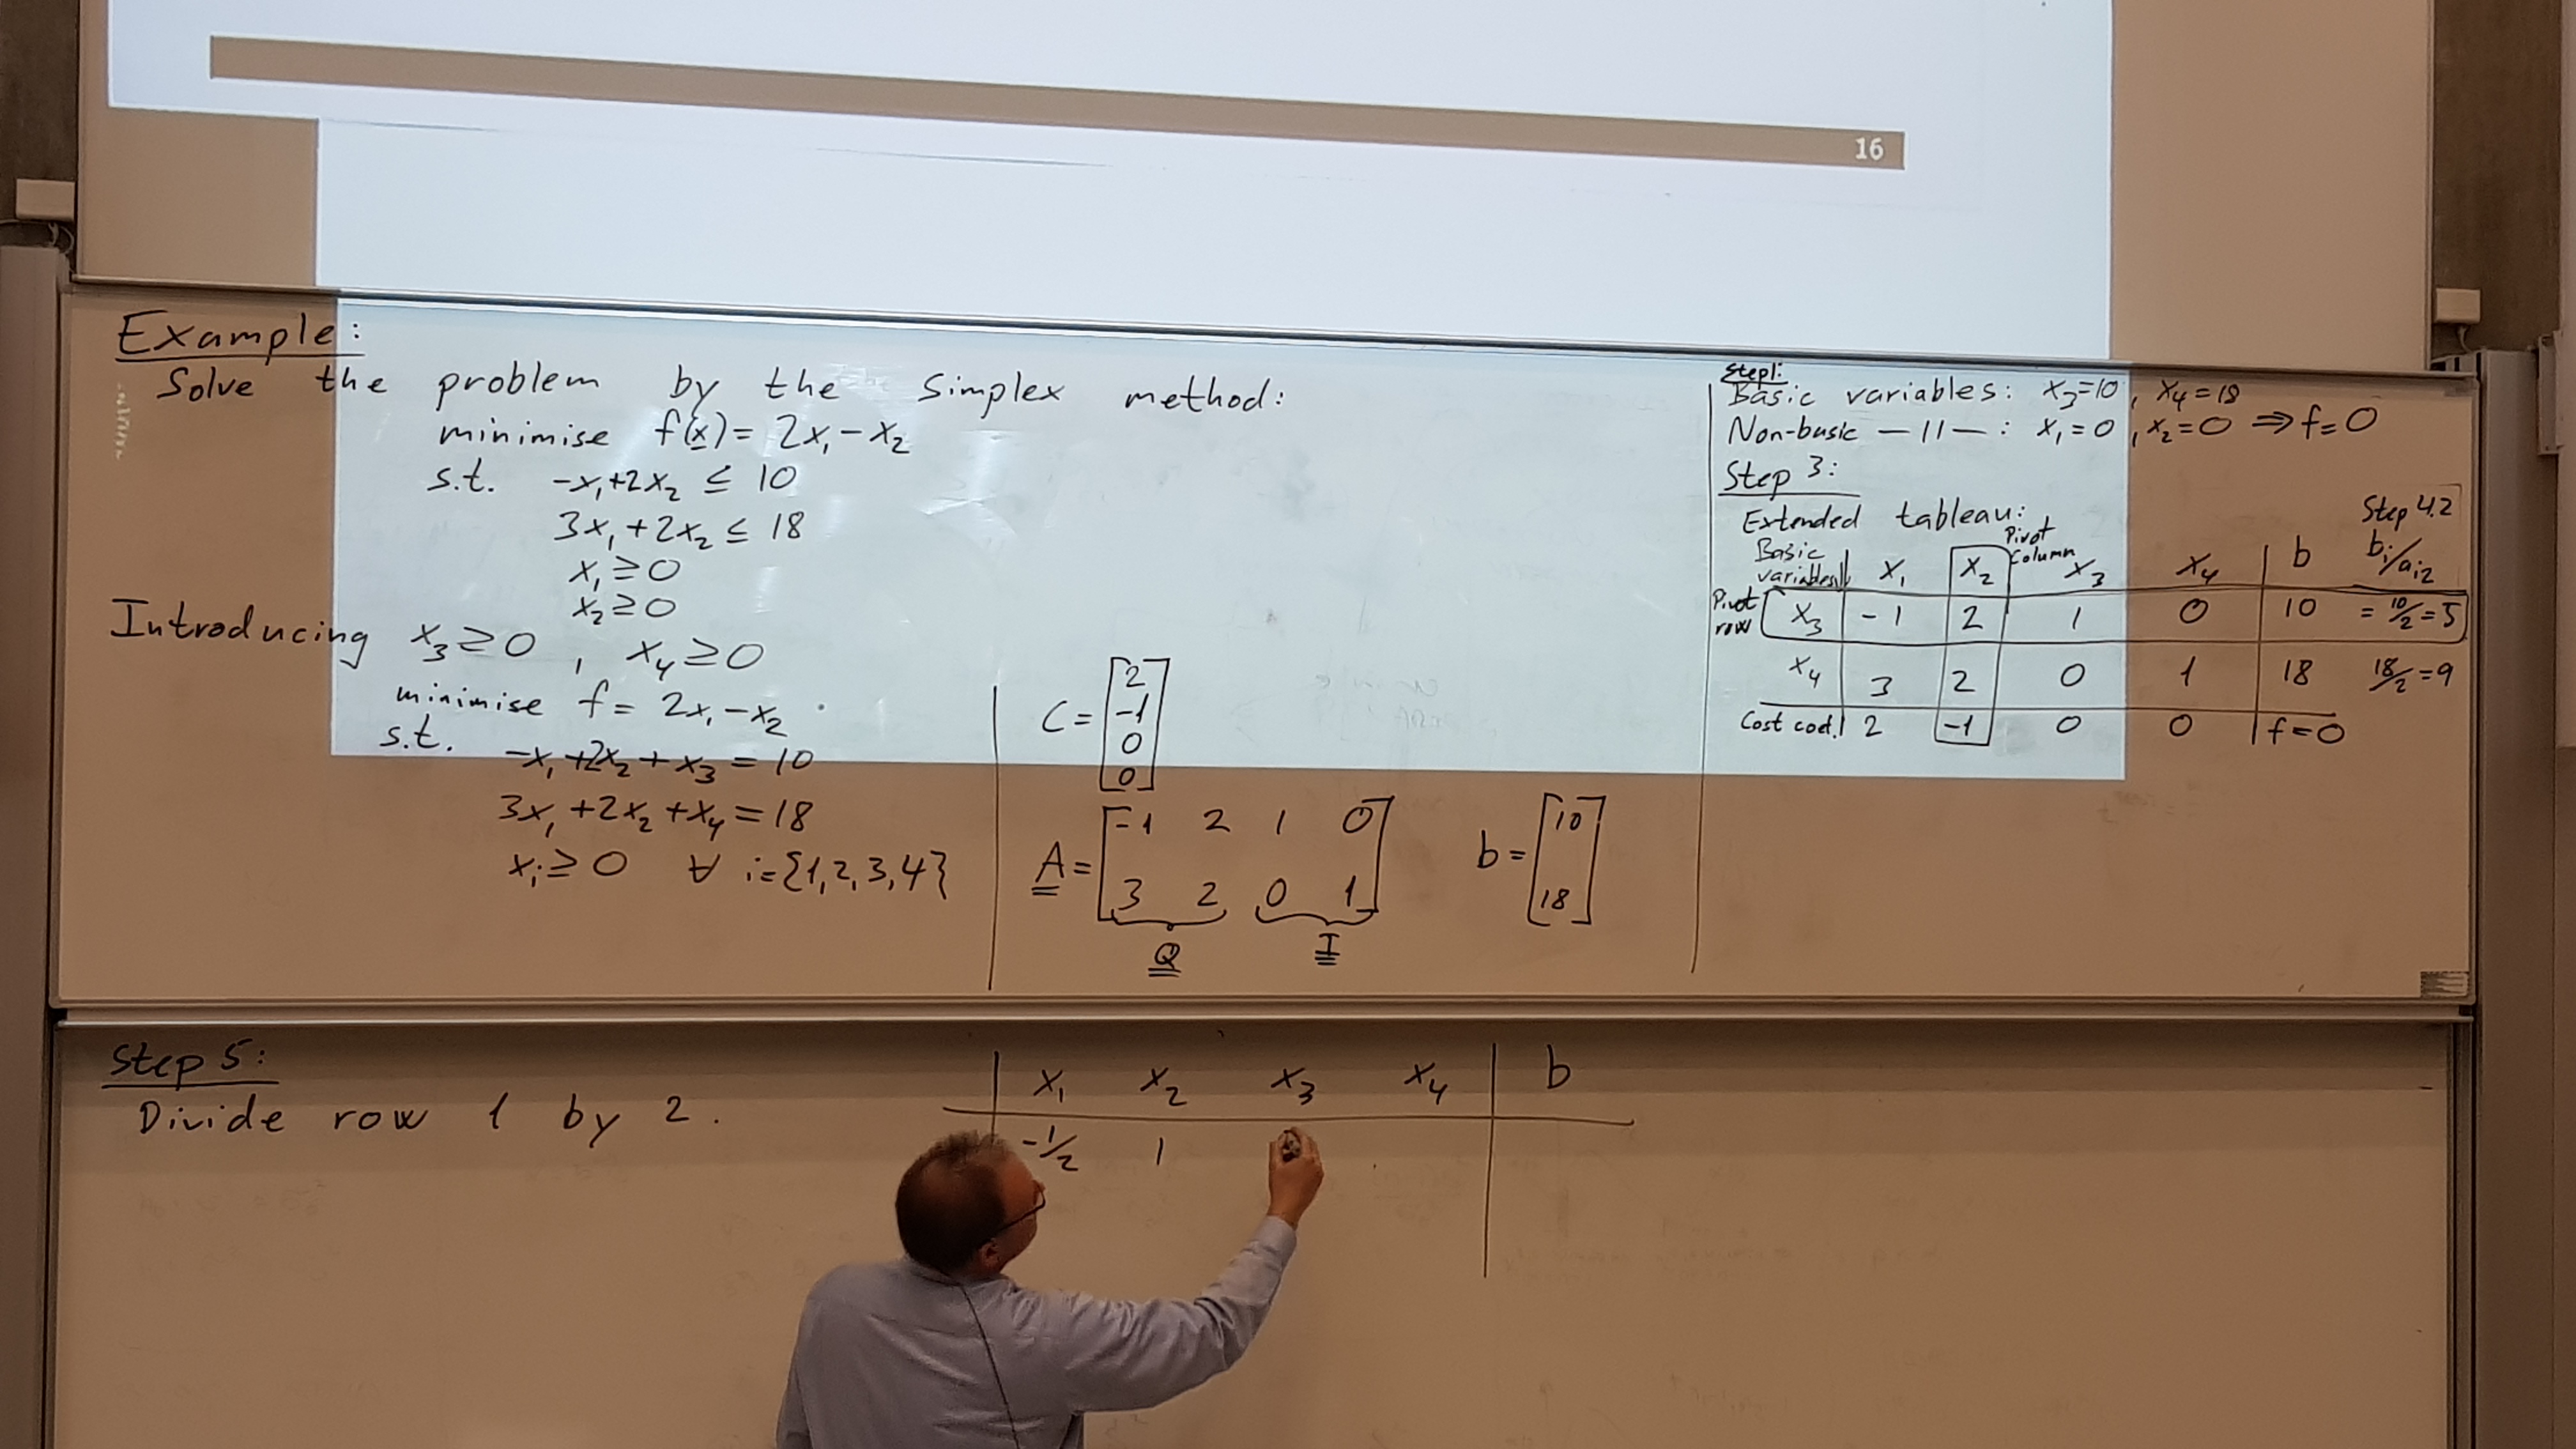 16
Example:
Solve the problem by the simplex method:
minimise f(x) = 2x₁ - x₂
s.t. -x₁+2x₂ ≤ 10
3x₁ + 2x₂ ≤ 18
x₁ ≥ 0
x₂ ≥ 0
Introducing x₃ ≥ 0 , x₄ ≥ 0
minimise f = 2x₁ - x₂
s.t. -x₁ + 2x₂ + x₃ = 10
3x₁ + 2x₂ + x₄ = 18
xᵢ ≥ 0 ∀ i = {1, 2, 3, 4}
C = [2
-1
0
0]
A = [-1 2 1 0
3 2 0 1]
Q I
b = [10
18]
Step 1:
Basic variables: x₃=10, x₄=18
Non-basic —11— : x₁=0, x₂=0 ⇒ f=0
Step 3:
Extended tableau:
Step 4.2
Pivot column
Basic variables x₁ x₂ x₃ x₄ b bᵢ/aᵢ₂
Pivot row x₃ -1 2 1 0 10 = 10/2 = 5
x₄ 3 2 0 1 18 18/2 = 9
Cost coef. 2 -1 0 0 f=0
Step 5:
Divide row 1 by 2.
x₁ x₂ x₃ x₄ b
-1/2 1